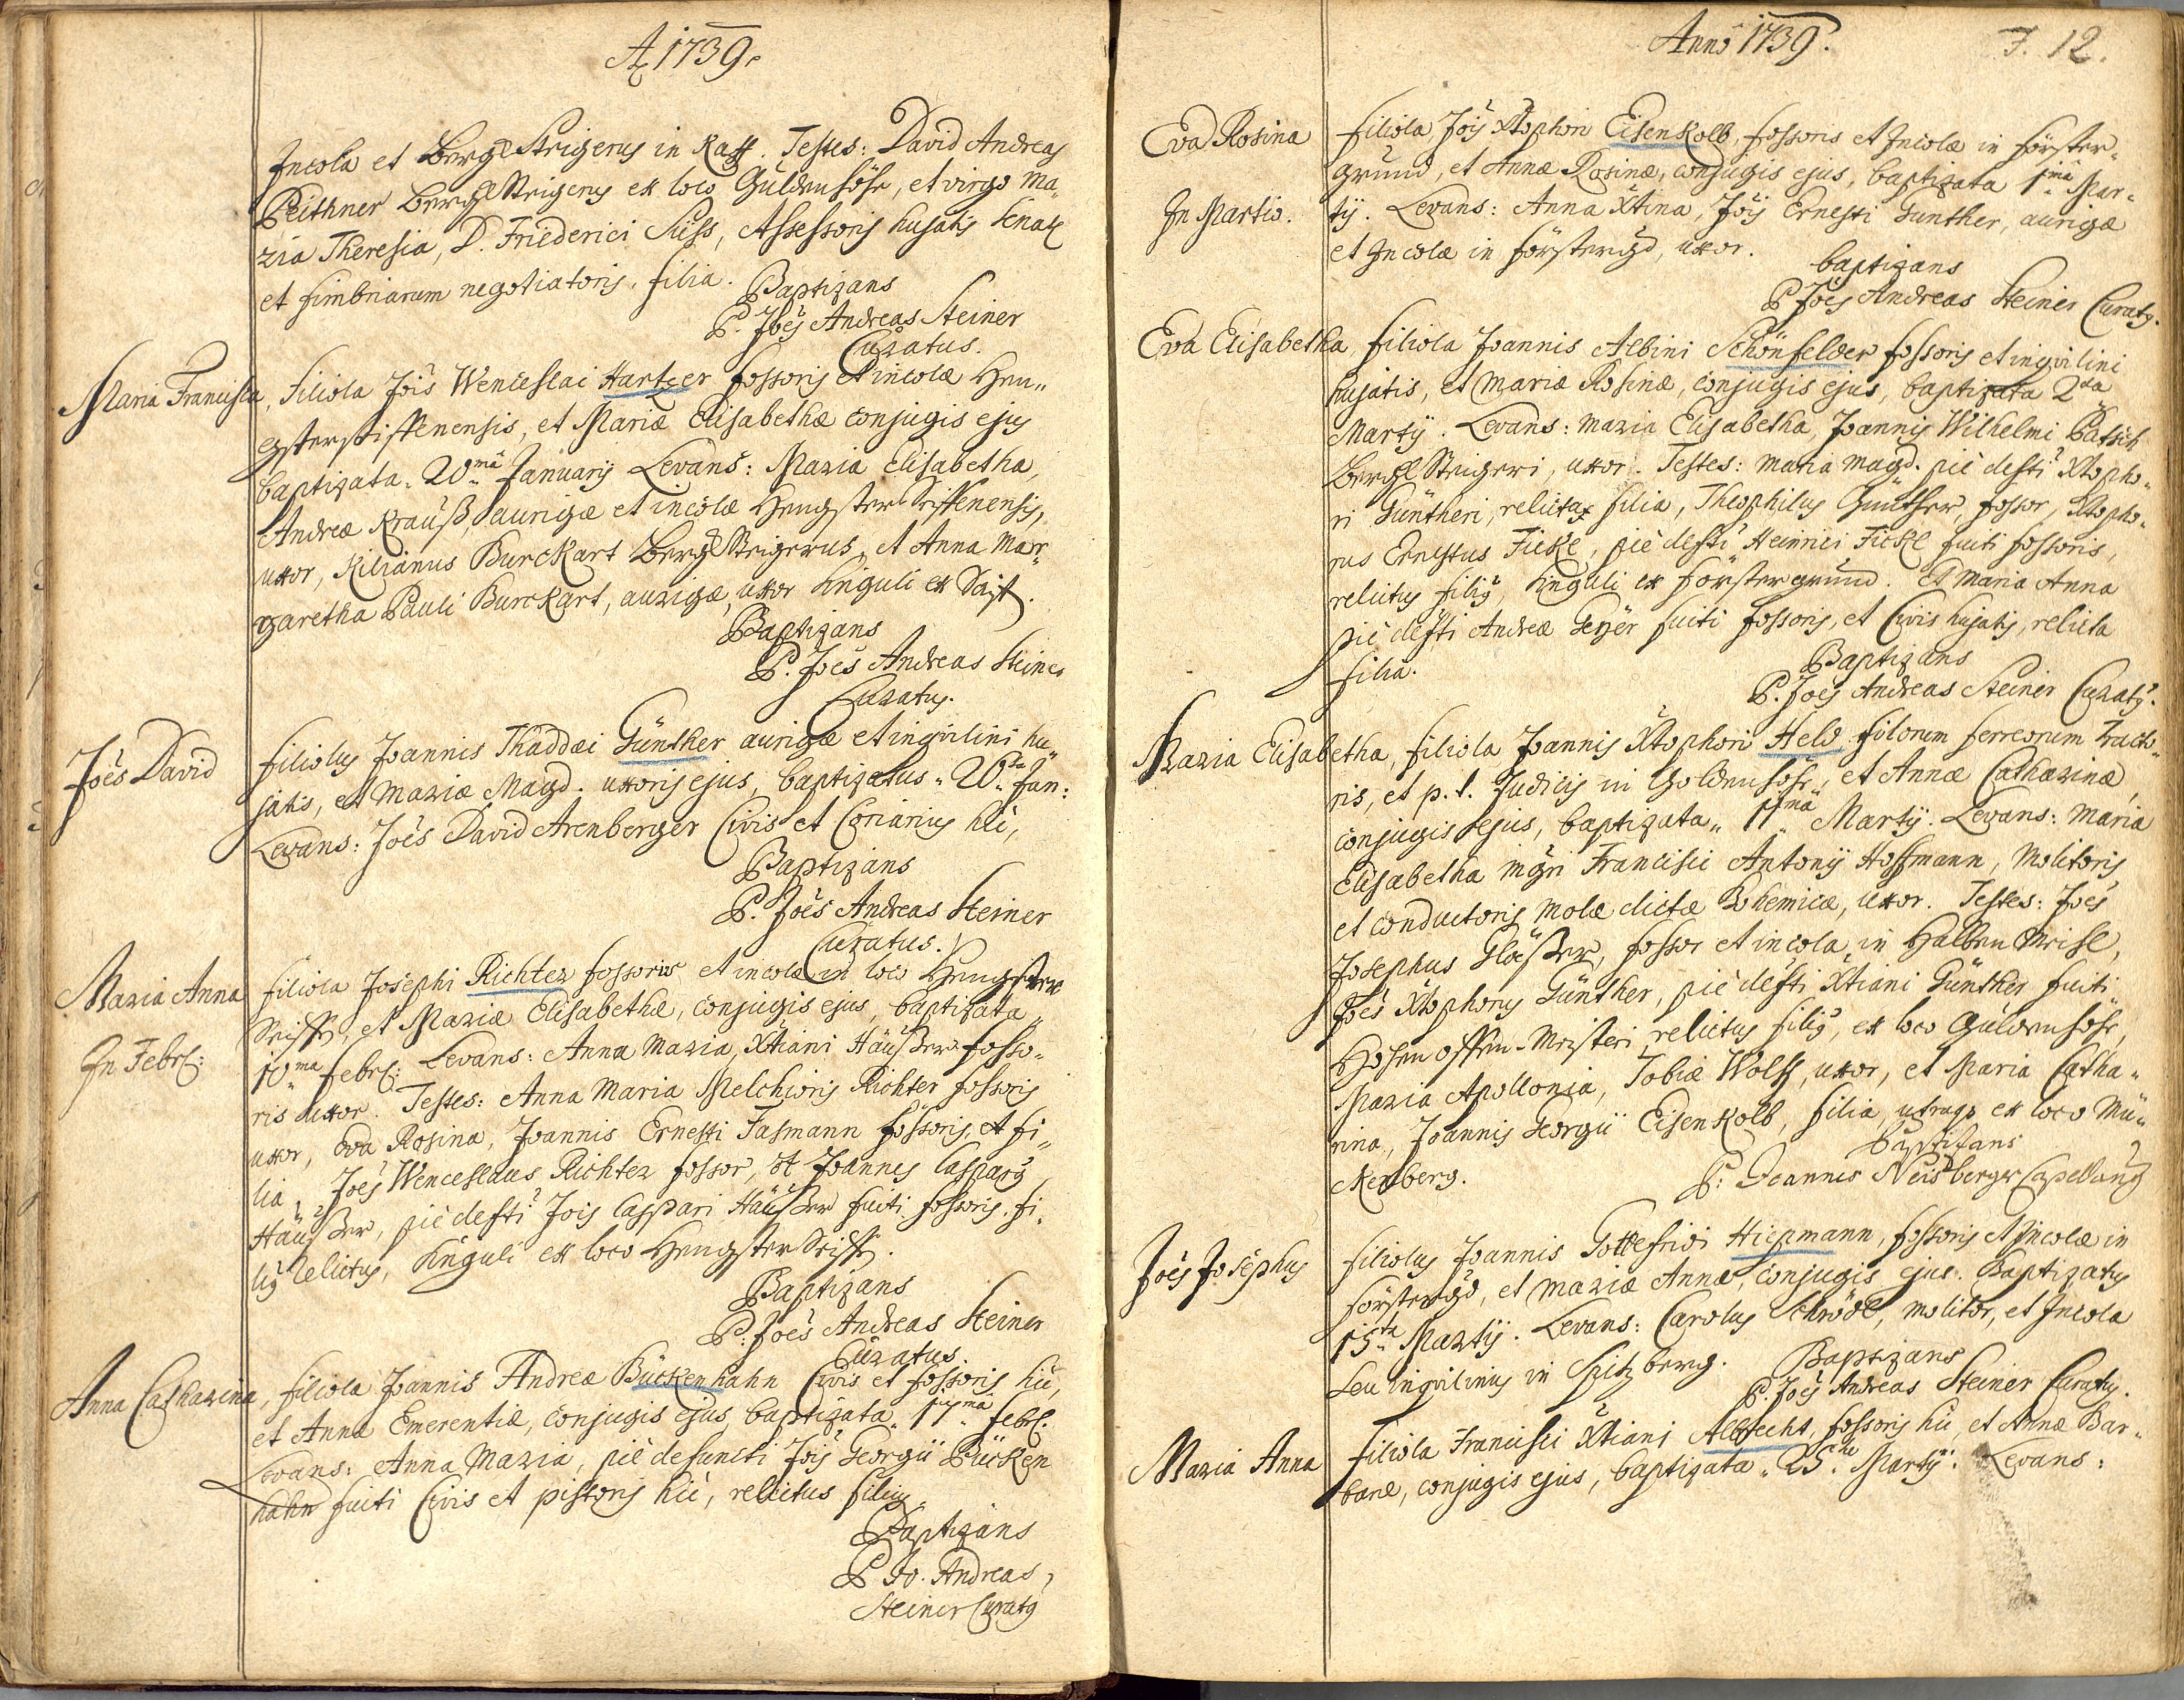 A 1739.
Incola et Bergl Strigerus in Kaff. Testes: David Andreas
Peithner Bergl Steigerus ex loco Güldenhöhe, et virgo Ma-
ria Theresia, D. Friederici Süss, Assessoris hujatis Senat
et fimbriarum negotiatoris, filia. Baptizans
P. Joës Andreas Steiner
Curatus.
Maria Francisca, Filiola Jois Wenceslai Hartzer fossoris et incolæ Hen-
gsterstiffenensis, et Mariæ Elisabethæ conjugis ejus
baptizata 20.ma Januarij Levans: Maria Elisabetha,
Andreæ Krauß, aurigæ et incolæ Hengster Seiffenensis,
uxor, Kilianus Burckart Bergl Steigerus, et Anna Mar-
garetha Pauli Burckart, aurigæ, uxor singuli ex
Baptizans
P. Joës Andreas Steiner
Curatus.
Joës David
filiolus Joannis Thaddæi Günther aurigæ et inqvilini hu-
jatis, et Mariæ Magd. uxoris ejus, baptizatus 26.ta Jan:
Levans: Joës David Arenberger Civis et Coriarius hic,
Baptizans
P. Joës Andreas Steiner
Curatus.
Maria Anna filiola Josephi Richter fossoris et incolæ in loco Hengster
Seiff, et Mariæ Elisabethæ, conjugis ejus, baptizata
In Febr:
10.ma Febr: Levans: Anna Maria, Xtiani Häußer fosso-
ris uxor. Testes: Anna Maria Melchioris Richter fossoris
uxor, Eva Rosina, Joannis Ernesti Fasmann fossoris, et fi-
lia, Joës Wenceslaus Richter fossor, et Joannes Casparg
Häußer, piè defti Jois Caspari Häußer fuiti fossoris, fi-
lig relictus, singuli ex loco Hengster Seiff.
Baptizans
P. Joës Andreas Steiner
Curatus.
Anna Catharina, filiola Joannis Andreæ Bückenhahn Civis et fossoris hic,
et Annæ Emerentiæ, conjugis ejus, baptizata 17.ma Febr.
Levans: Anna Maria, piè defuncti Jois Georgii Bücken
hahn fuiti Civis et pistoris hic, relictus filius
Baptizans
P Jo. Andreas
Steiner Curatg
Anno 1739. F. 12.
Eva Rosina filiola Jois Xtophori Eisenkolb, fossoris et Incolæ in Förster-
grund, et Annæ Rosinæ, conjugis ejus, baptizata 1.ma Mar-
In Martio. tij. Levans: Anna Xtina, Jois Ernesti Günther, aurigæ
et Incolæ in Förstergrd, uxor. Baptizans
P Joës Andreas Steiner Curatg.
Eva Elisabetha, filiola Joannis Albini Schönfelder fossoris et inqvilini
hujatis, et Mariæ Rosinæ, conjugis ejus, baptizata 2.da
Martij. Levans: Maria Elisabetha, Joannis Wilhelmi Patsch
Bergl Steigeri, uxor. Testes: Maria Magd. piè defti Xtopho-
ri Güntheri, relicta filia, Theophilus Günther, fossor, Xtopho-
rus Ernestus Fickl, piè defti Heinrici Fickl fuiti fossoris,
relictus filig, singuli ex Förstergrund. Et Maria Anna
piè defti Andreæ Geyer fuiti fossoris, et Civis hujatis, relicta
filia.
Baptizans
P. Joës Andreas Steiner Curatg.
Maria Elisabetha, filiola Joannis Xtophori Held filorum ferreorum Tracto-
ris, et p. t. Judicis in Goldenhöhe, et Annæ Catharinæ,
conjugis ejus, baptizata 11.ma Martij. Levans: Maria
Elisabetha mgri Francisci Antonij Hoffmann, Molitoris
et conductoris molæ dictæ Bohemicæ, uxor. Testes: Joës
Josephus Gläßer, fossor et incola, in Halben Meihl,
Joës Xtophorus Günther, piè defti Xtiani Günther fuiti
Hohen Offen-Meisteri relictus filig, ex loco Güldenhöhe,
Maria Apollonia, Tobiæ Wolff, uxor, et Maria Catha-
rina, Joannis Georgii Eisenkolb, filia, utraqz ex loco Mü-
ckenberg. Baptizans
P: Joannes Neisberger Capellang
Joës Josephus filiolus Joannis Gottefridi Hiepmann, fossoris et Incolæ in
Förstergrd, et Mariæ Annæ, conjugis ejus. Baptizatus
15.ta Martij. Levans: Carolus Schrödl, molitor, et Incola
seu inqvilinus in Spitzberg. Baptizans
P. Joës Andreas Steiner Curatg.
Maria Anna filiola Francisci Xtiani Albrecht, fossoris hic, et Annæ Bar-
baræ, conjugis ejus, baptizata 25.ta Martij. Levans: